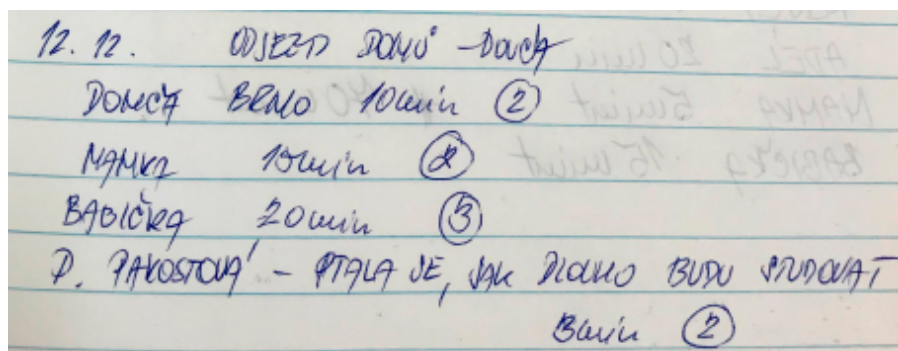 12. 12. ODJEZD DOMŮ - DOMČA
DOMČA BRNO 10 min 2
MAMKA 15 min 2
BABIČKA 20 min 3
P. PAKOSTOVÁ - PTALA SE, JAK DLOUHO BUDU STUDOVAT
3 min 2